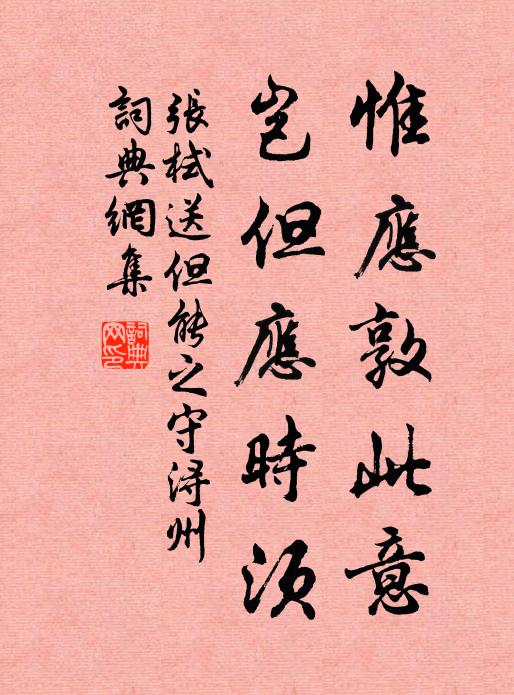 惟應敦此意
豈但應時須
張栻送但能之守潯州
詞典網集
詞典网印